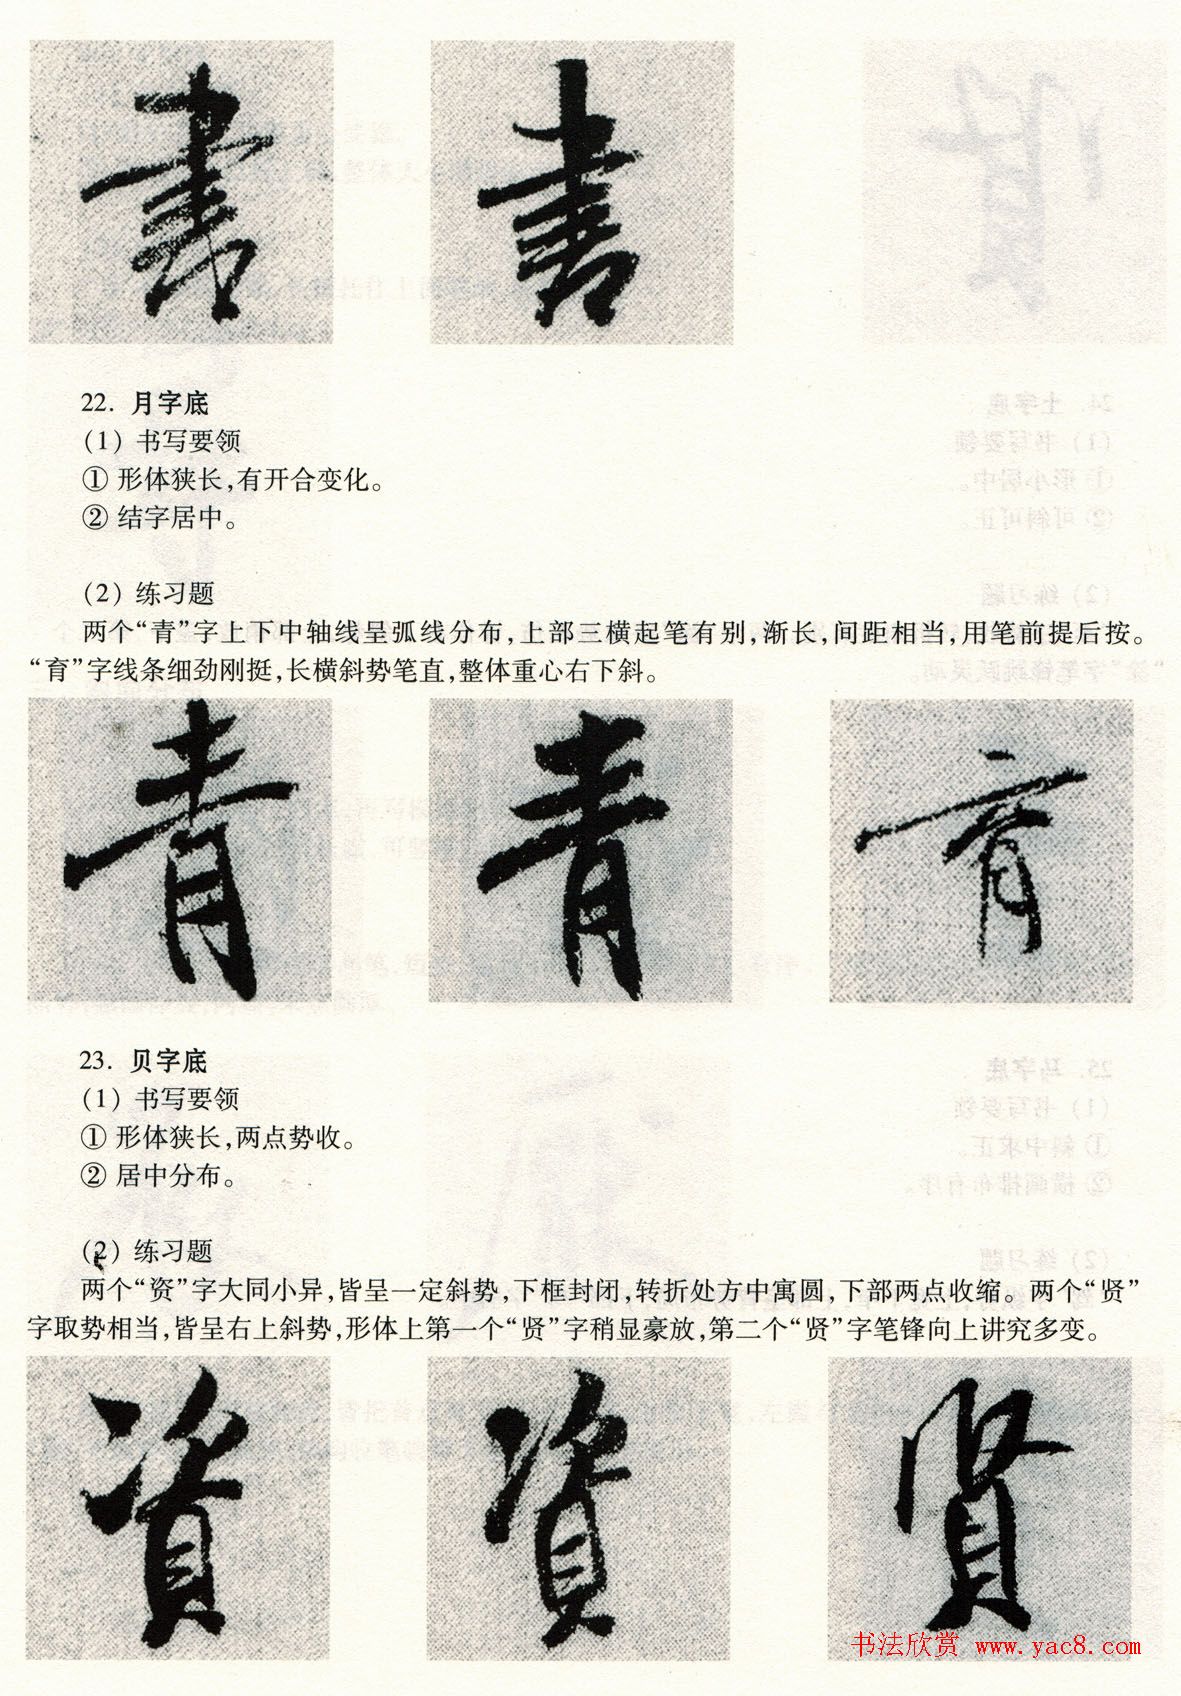 書 書
22. 月字底
(1) 书写要领
① 形体狭长,有开合变化。
② 结字居中。
(2) 练习题
两个“青”字上下中轴线呈弧线分布,上部三横起笔有别,渐长,间距相当,用笔前提后按。
“育”字线条细劲刚挺,长横斜势笔直,整体重心右下斜。
青 青 育
23. 贝字底
(1) 书写要领
① 形体狭长,两点势收。
② 居中分布。
(2) 练习题
两个“资”字大同小异,皆呈一定斜势,下框封闭,转折处方中寓圆,下部两点收缩。两个“贤”
字取势相当,皆呈右上斜势,形体上第一个“贤”字稍显豪放,第二个“贤”字笔锋向上讲究多变。
資 資 賢
书法欣赏 www.yac8.com